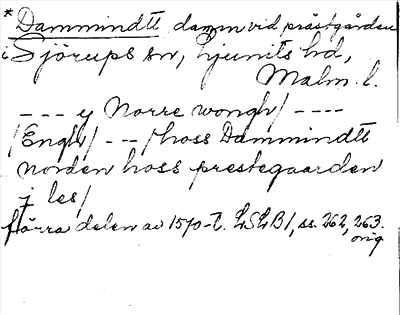 * Dammindtt damm vid prästgården
i Sjörups sn, Ljunits hd,
Malm. l.
--- y Norre wongh/ ----
/Engh/ --- /hoss Dammindtt
norden hoss prestegaarden
j les/
förra delen av 1570-t. LSLB1, ss. 262, 263.
orig